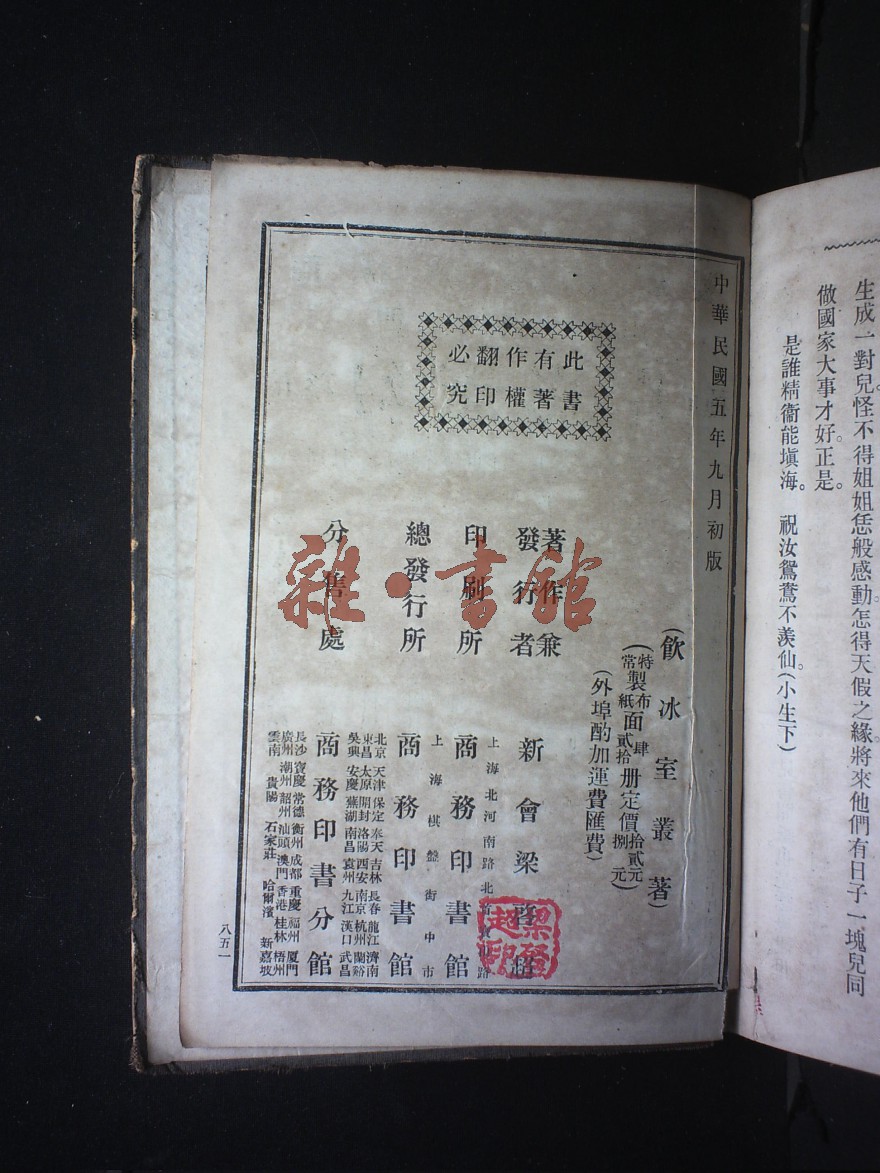 生成一對兒。怪不得姐姐恁般感動。怎得天假之緣。將來他們有日子一塊兒同
做國家大事才好。正是。
是誰精衞能塡海。祝汝鴛鴦不羨仙。(小生下)
中華民國五年九月初版
此書有著作權翻印必究
(飲冰室叢著)
(特製布面肆册定價拾貳元)
(常製紙面貳拾册定價捌元)
(外埠酌加運費匯費)
著作兼發行者 新會梁啓超
梁啓超印
上海北河南路北首寶山路
印刷所 商務印書館
上海棋盤街中市
總發行所 商務印書館
北京 天津 保定 奉天 吉林 長春 龍江 濟南
東昌 太原 開封 洛陽 西安 南京 杭州 蘭谿
吳興 安慶 蕪湖 南昌 袁州 九江 漢口 武昌
分售處 商務印書分館
長沙 寶慶 常德 衡州 成都 重慶 福州 厦門
廣州 潮州 韶州 汕頭 澳門 香港 桂林 梧州
雲南 貴陽 石家莊 哈爾濱 新嘉坡
八五一
雜·書館